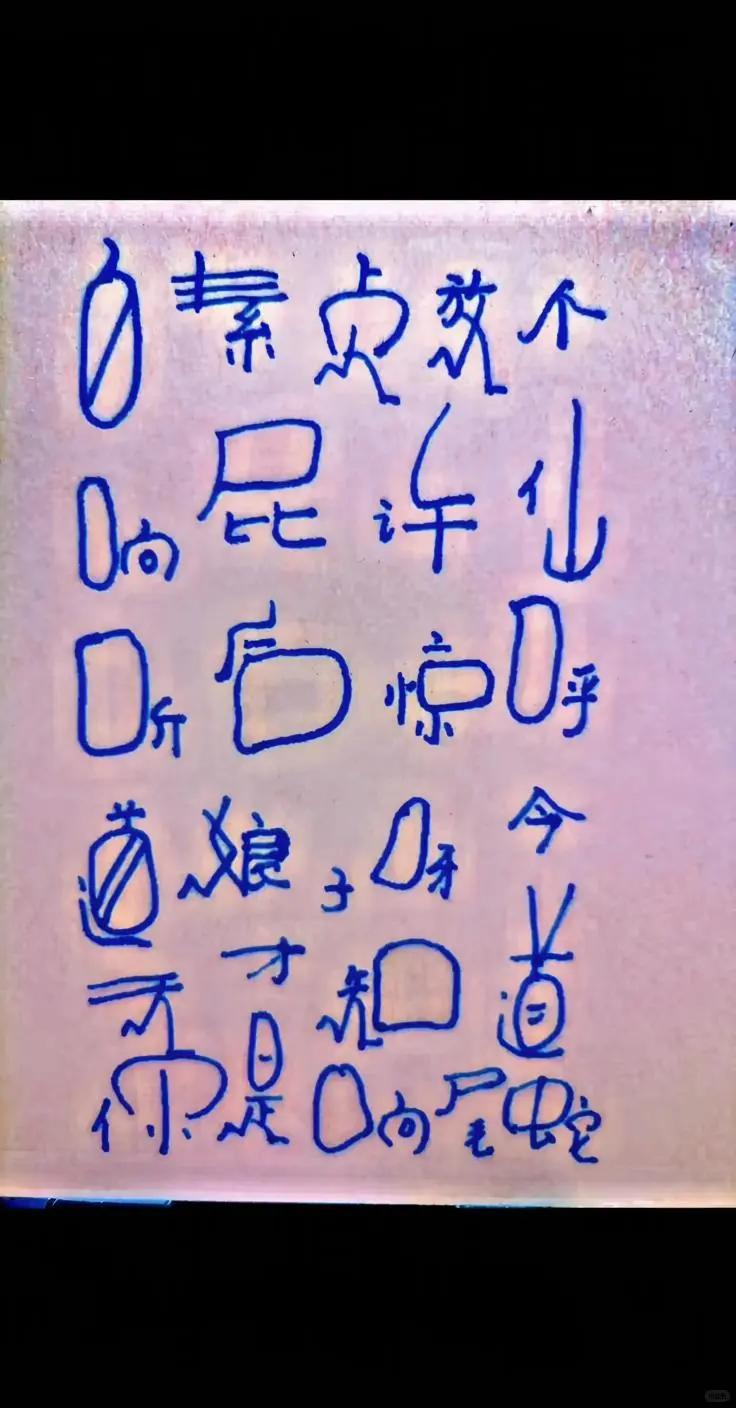 白素贞放个
响屁许仙
听后惊呼
道娘子呀今
天才知道
你是响尾蛇